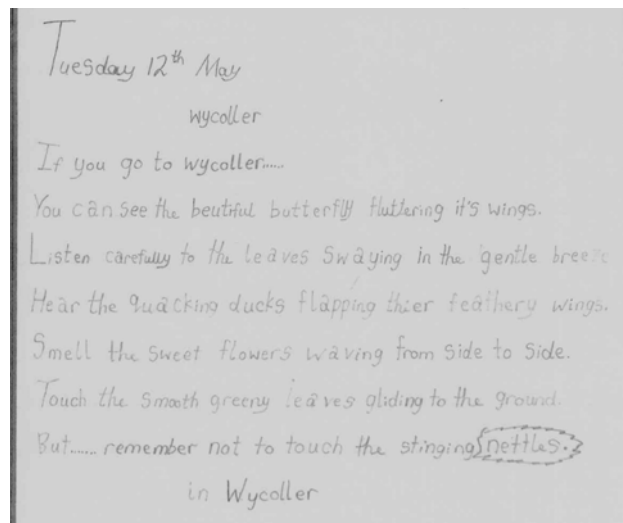 Tuesday 12th May
wycoller
If you go to wycoller......
You can see the beutiful butterfly fluttering it's wings.
Listen carefully to the leaves swaying in the gentle breeze
Hear the quacking ducks flapping thier feathery wings.
Smell the sweet flowers waving from side to side.
Touch the smooth greeny leaves gliding to the ground.
But...... remember not to touch the stinging nettles.
in Wycoller